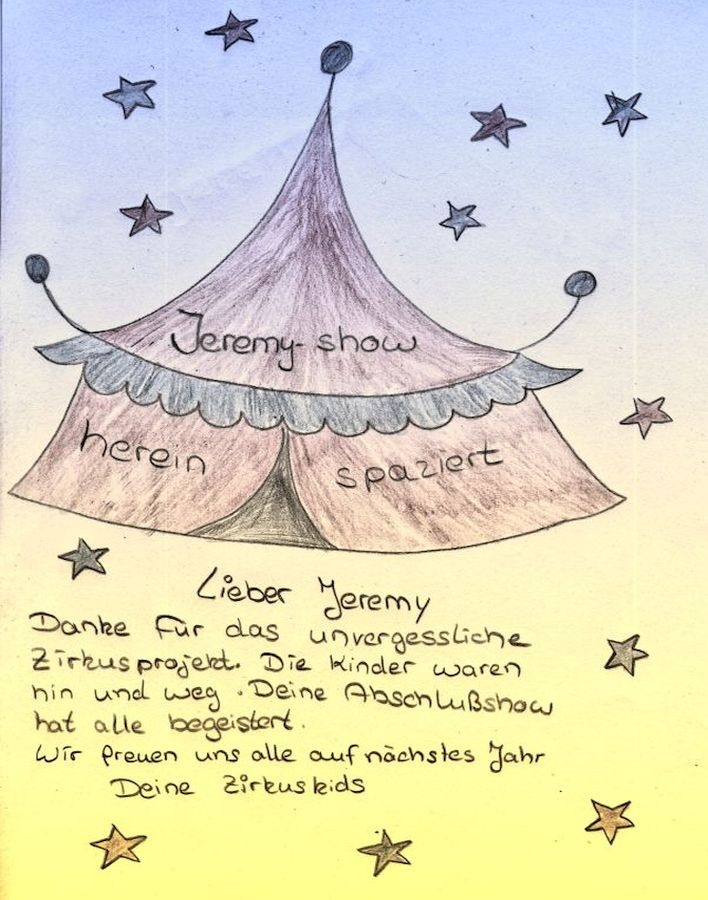 Jeremy-show
herein spaziert
Lieber Jeremy
Danke für das unvergessliche
Zirkusprojekt. Die Kinder waren
hin und weg. Deine Abschlußshow
hat alle begeistert.
Wir freuen uns alle auf nächstes Jahr
Deine Zirkuskids